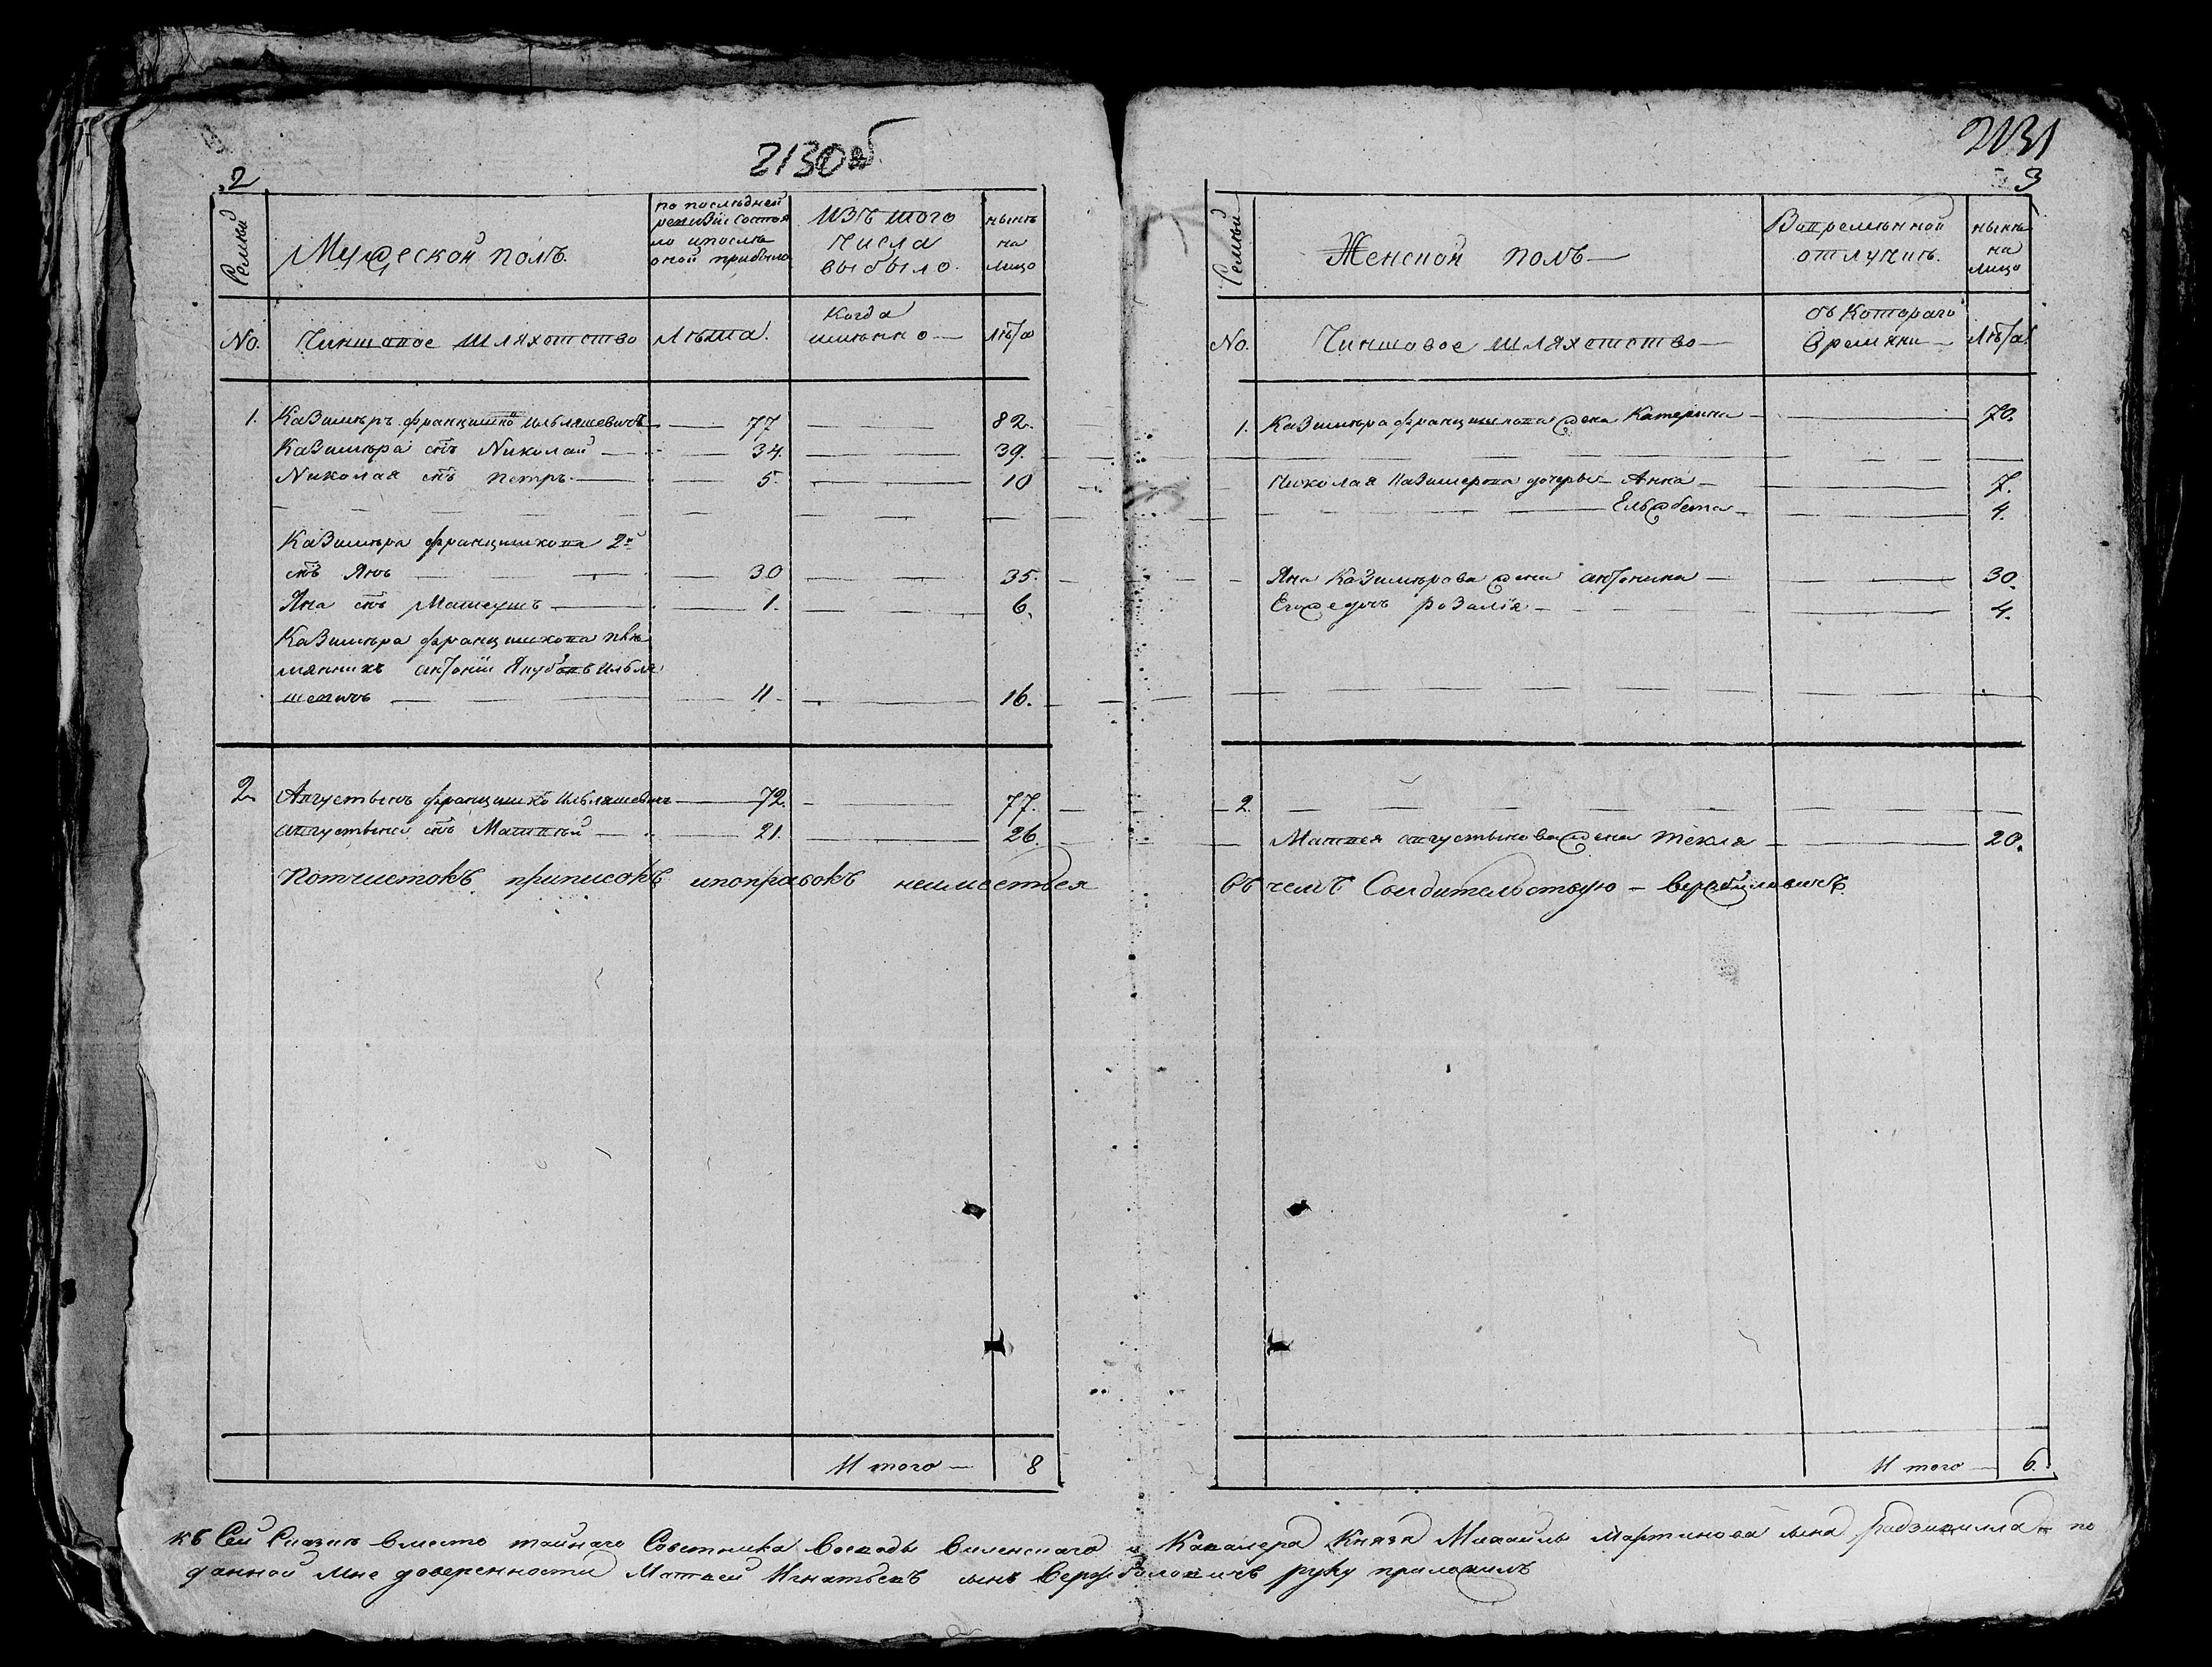 2130об
2
Семьи
Мужеской полъ.
по последней
ревизiи состоя
ло ипосле
оной прибыло
изъ того
числа
выбыло.
ныне
на
лицо
No.
Чиншовое шляхотство
Лѣта.
Когда
имянно —
Лѣта
1. Казимѣръ Францишко Ильяшевичъ — 77 — 82.
Казимѣра сынъ Николай — 34. — 39.
Николая сынъ Петръ — 5. — 10
Казимѣра Францишкова 2й
сынъ Янъ — 30 — 35.
Яна сынъ Матеушъ — 1. — 6.
Казимѣра Францишкова пле
мянникъ антонiй Якубовъ Илья
шевичъ — 11 — 16.
2. Августынъ Францишко Ильяшевичъ — 72. — 77.
августына сынъ Матвѣй — 21. — 26.
Потчистокъ приписокъ ипоправокъ неимеетьея
Итого — 8
2131
3
Семьи
Женской полъ —
Вовремянной
отлучке.
ныне
на
лицо
No.
Чиншовое шляхотство —
съ Котораго
Времяни —
Лѣта
1. Казимѣра Францишкова жена Катерина — 70.
Николая Казимерова дочерьи Анна — 7.
Ельжбета — 4.
Яна Казимѣрова жена антонина — 30.
Егожедочь розалiя — 4.
2.
Матвея августынова жена Текля — 20.
въ чемъ Свидительствую — Вержбиловичъ.
Итого — 6.
къ Сей Сказке вместо тайнаго Советника Воеводы Виленскаго и Кавалера Князя Михайлы Мартинова сына Радзивилла по
данной мне доверенности Матвей Игнатьевъ сынъ Вержбиловичъ руку приложилъ